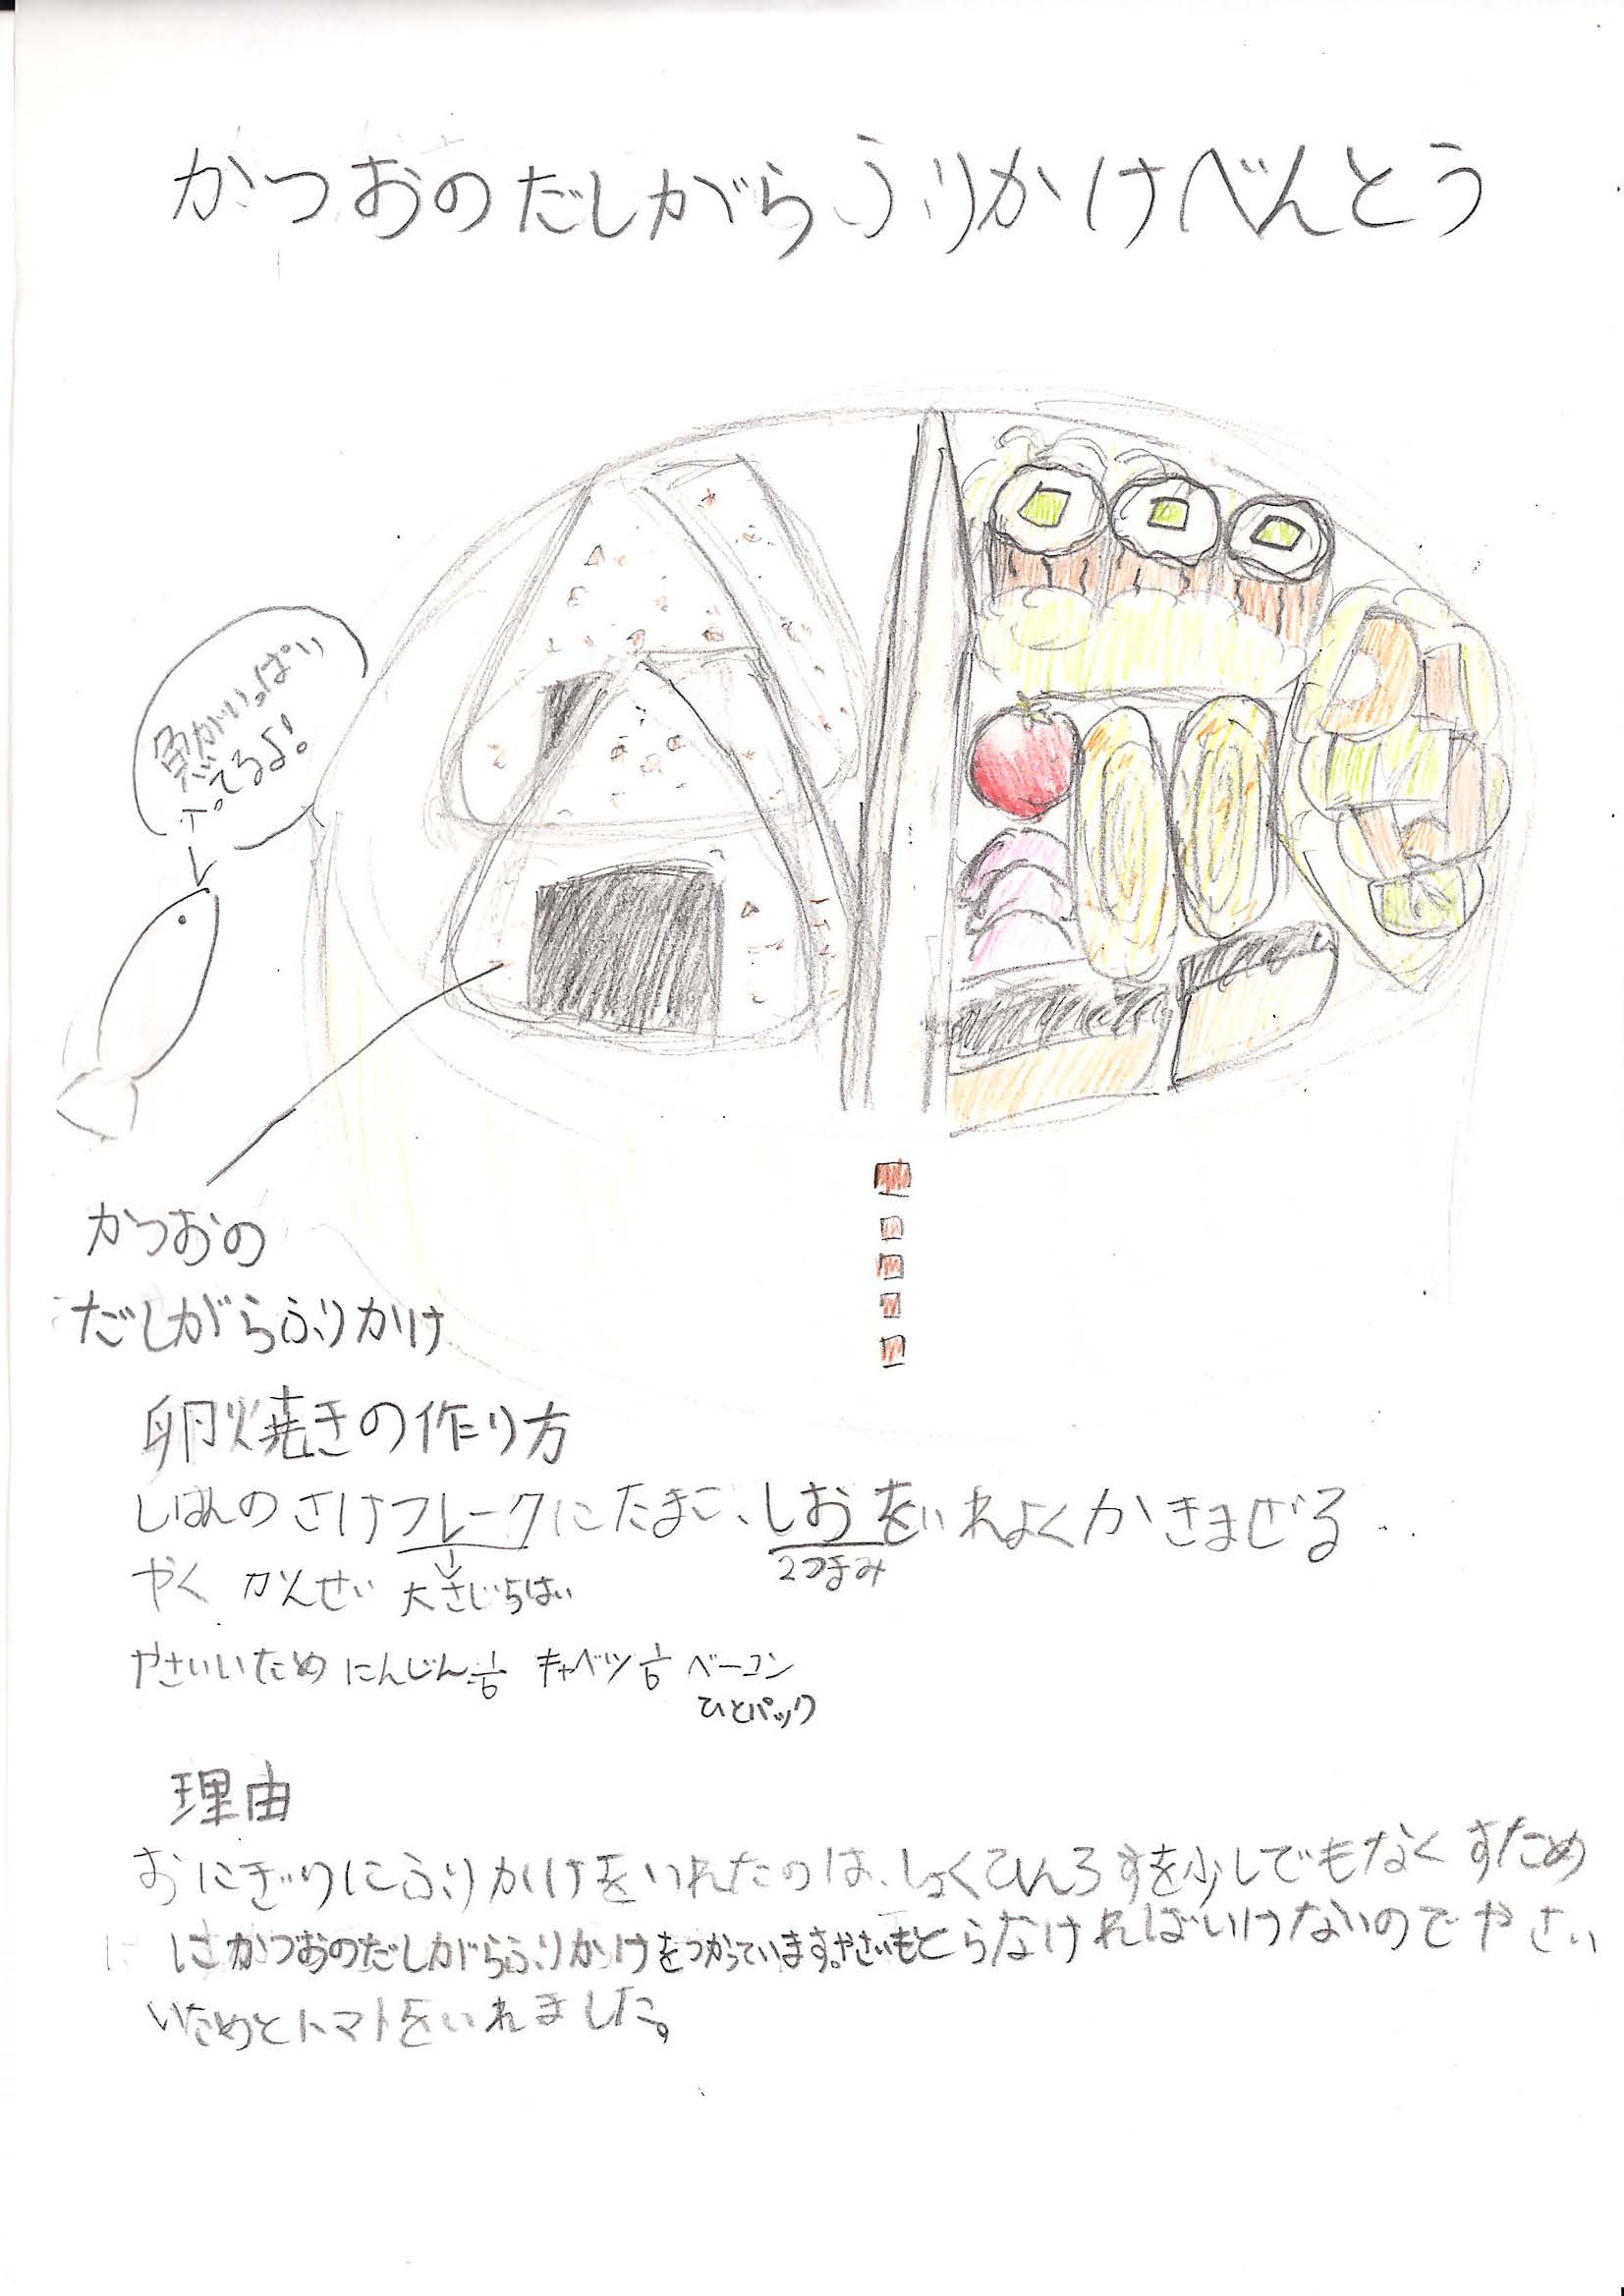 かつおのだしがらふりかけべんとう
魚がいっぱい
でてるよ!
かつおの
だしがらふりかけ
卵焼きの作り方
しはんのさけフレークにたまご、しおをいれよくかきまぜる
2つまみ
やく かんせい 大さじ1ぱい
やさいいため にんじん1/6 キャベツ1/6 ベーコン
ひとパック
理由
おにぎりにふりかけをいれたのは、しょくひんろすを少しでもなくすため
にかつおのだしがらふりかけをつかっています。やさいもとらなければいけないのでやさい
いためとトマトをいれました。